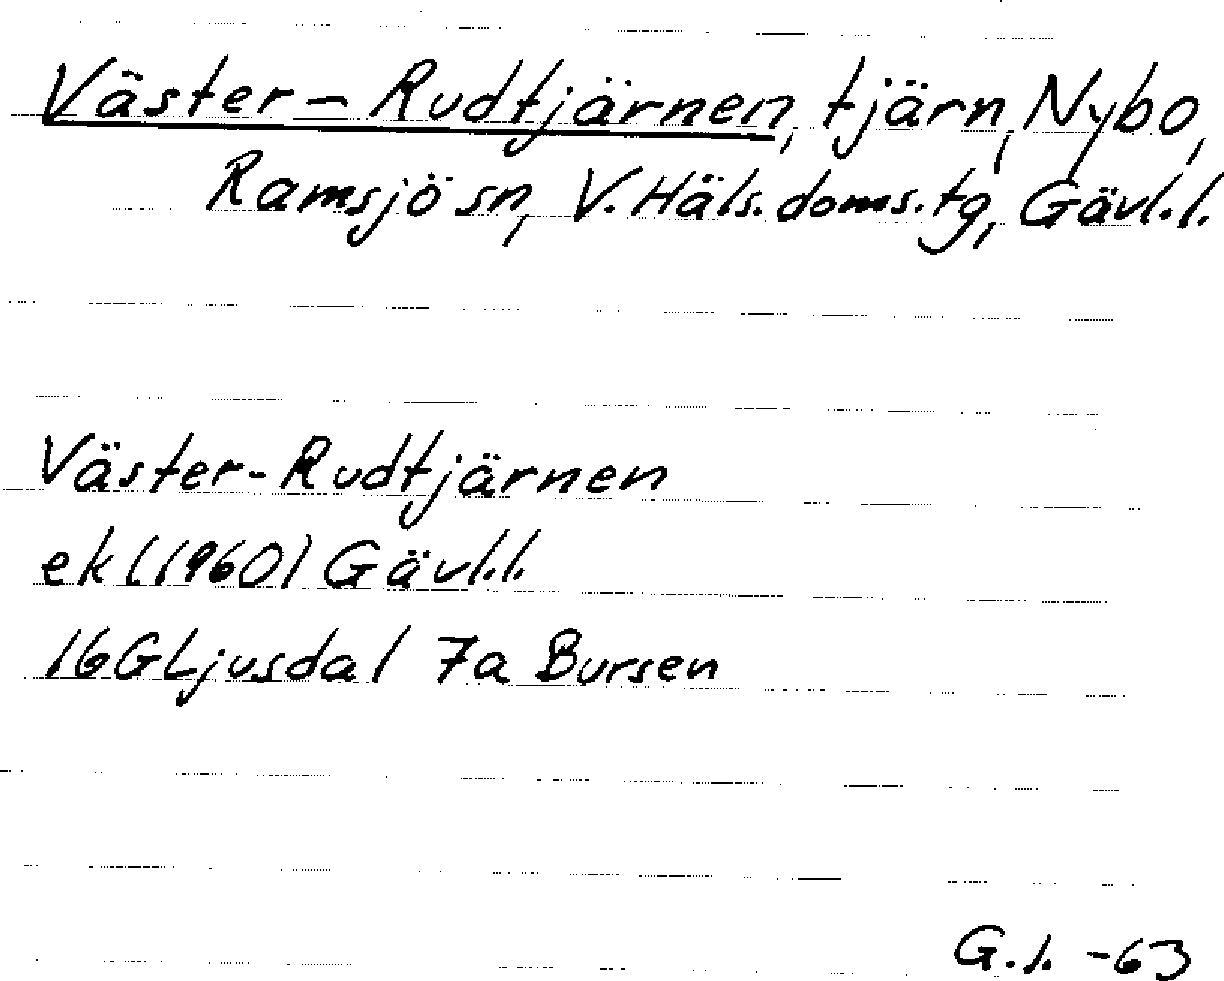 Väster-Rudtjärnen, tjärn, Nybo,
Ramsjö sn, V. Häls. doms. tg, Gävl.l.
Väster-Rudtjärnen
ek (1960) Gävl.l.
16G Ljusdal 7a Bursen
G.l. -63